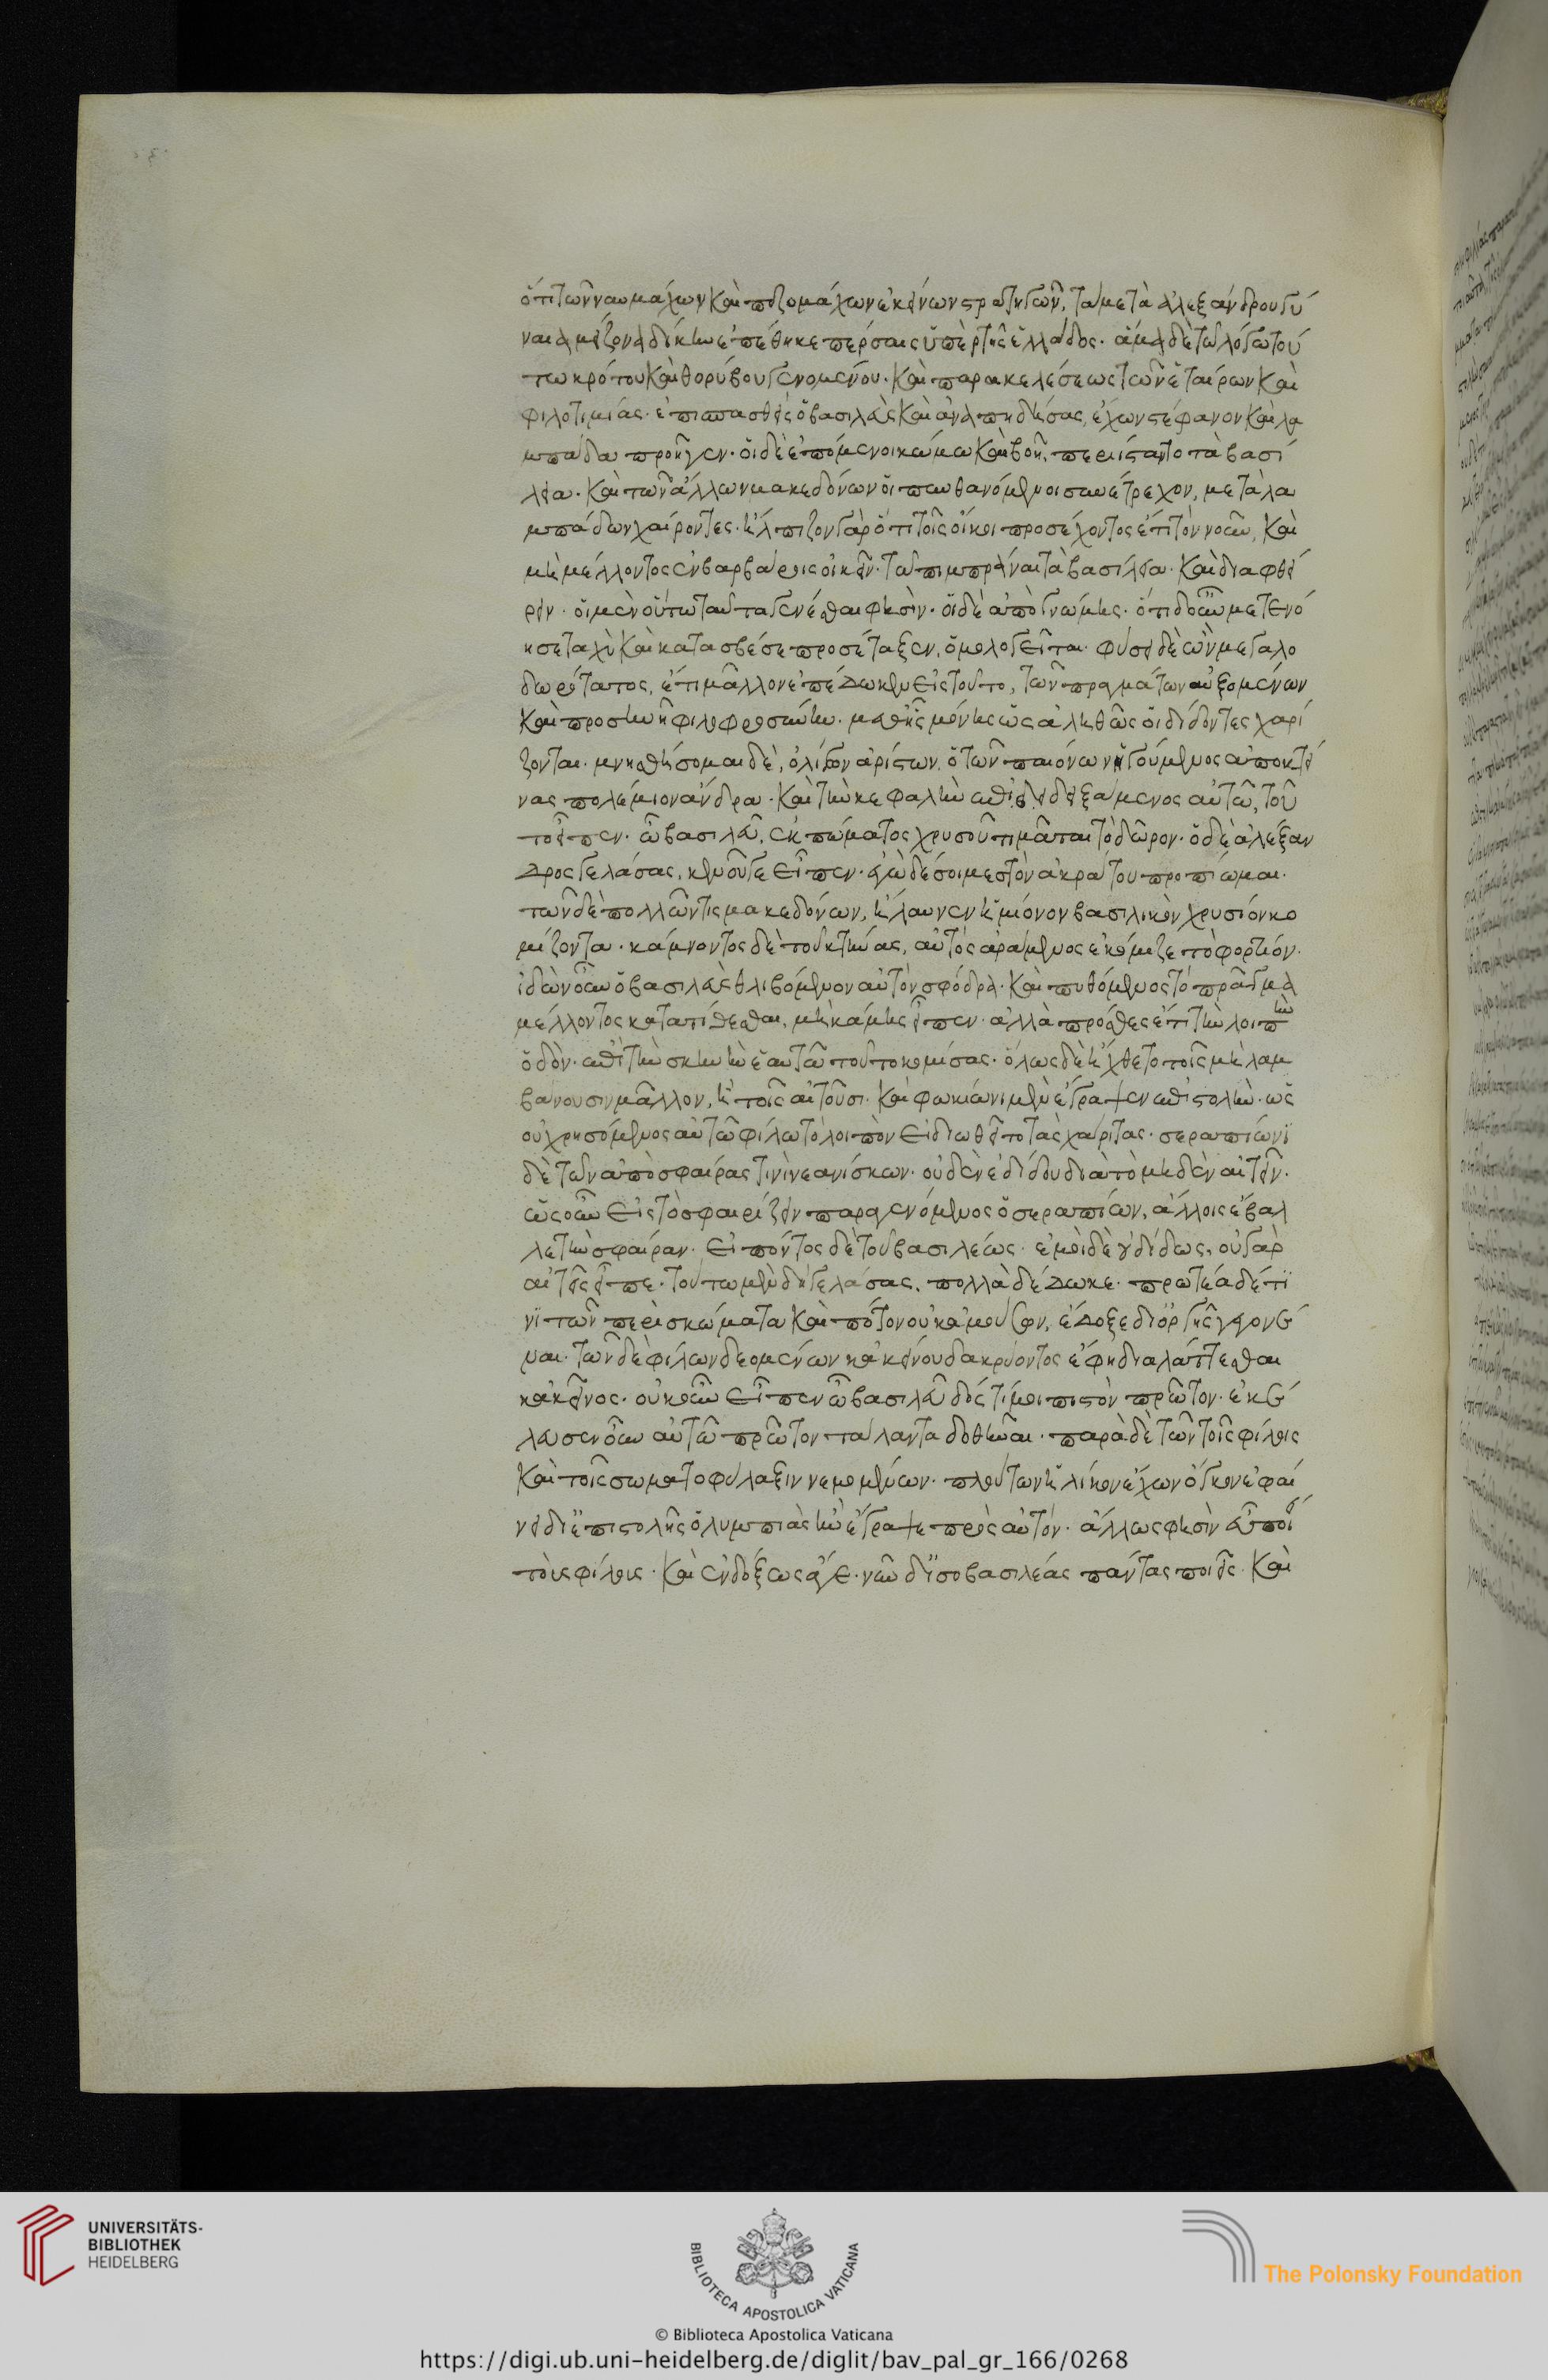 ὅτι τῶν ναυμάχων καὶ πεζομάχων ἐκείνων στρατηγῶν, τὰ μετὰ ἀλεξάνδρου γύ
ναια μείζονα δίκην ἐπέθηκε πέρσαις ὑπὲρ τῆς ἑλλάδος. ἅμα δὲ τῶ λόγω τού
τω κρότου καὶ θορύβου γενομένου. καὶ παρακελέσεως τῶν ἑταίρων καὶ
φιλοτιμίας. ἐπισπασθεὶς ὁ βασιλεὺς καὶ ἀναπηδήσας, ἔχων στέφανον καὶ λα
μπάδα προῆγεν. οἱ δὲ ἑπόμενοι κώμω καὶ βοῆ, περιίσταντο τὰ βασί
λεια. καὶ τῶν ἄλλων μακεδόνων οἱ πυνθανόμενοι συνέτρεχον, μετὰ λα
μπάδων χαίροντες. ἤλπιζον γὰρ ὅτι τοῖς οἴκοι προσέχοντος ἐστὶ τὸν νοῦν, καὶ
μὴ μέλλοντος ἐν βαρβάροις οἰκεῖν. τὸ πιμπράναι τὰ βασίλεια. καὶ διαφθεί
ρειν. οἱ μὲν οὕτω ταῦτα γενέσθαι φησὶν. οἱ δὲ ἀπὸ γνώμης. ὅτι δ' οὖν μετενό
ησε ταχὺ καὶ κατασβέσε προσέταξεν, ὁμολογεῖται. φύσει δὲ ὢν μεγαλο
δωρότατος, ἔτι μᾶλλον ἐπέδωκεν εἰς τοῦτο, τῶν πραγμάτων αὐξομένων
καὶ προσῆν ἡ φιλοφροσύνη. μεθ' ἧς μόνης ὡς ἀληθῶς οἱ διδόντες χαρί
ζονται. μνησθήσομαι δὲ, ὀλίγον ἀρίστων, ὁ τῶν παιόνων ἡγούμενος ἀποκτεί
νας πολέμιον ἄνδρα. καὶ τὴν κεφαλὴν ἐπιδειξάμενος αὐτῶ, τοῦ
το εἶπεν. ὦ βασιλεῦ, ἐκπώματος χρυσοῦ τιμᾶται τὸ δῶρον. ὁ δὲ ἀλέξαν
δρος γελάσας, κενοῦ γε εἶπεν. ἐγὼ δέ σοι μεστὸν ἀκράτου προπίωμαι.
τῶν δὲ πολλῶν τις μακεδόνων, ἤλαυνεν ἡμίονον βασιλικὸν χρυσίον κο
μίζοντα. κάμνοντος δὲ τοῦ κτήνους, αὐτὸς ἀράμενος ἐκόμιζε τὸ φορτίον.
ἰδὼν οὖν ὁ βασιλεὺς θλιβόμενον αὐτὸν σφόδρα. καὶ πυθόμενος τὸ πρᾶγμα
μέλλοντος κατατίθεσθαι, μὴ κάμης εἶπεν. ἀλλὰ πρόσθες ἔτι τὴν λοιπὴν
ὁδὸν. ἐπὶ τὴν σκηνὴν ἑαυτῶ τοῦτο κομίσας. ὅλως δὲ ἤχθετο τοῖς μὴ λαμ
βάνουσιν μᾶλλον, ἢ τοῖς αἰτοῦσι. καὶ φωκίωνι μὲν ἔγραψεν ἐπιστολὴν. ὡς
οὐ χρησόμενος αὐτῶ φίλω τὸ λοιπὸν εἰ διωθεῖτο τὰς χάριτας. σεραπίωνι
δὲ τῶν ἀπὸ σφαίρας τινὶ νεανίσκων. οὐδὲν ἐδίδου διὰ τὸ μηδὲν αἰτεῖν.
ὡς οὖν εἰς τὸ σφαιρίζειν παραγενόμενος ὁ σεραπίων, ἄλλοις ἔβαλ
λε τὴν σφαίραν. εἰπόντος δὲ τοῦ βασιλέως. ἐμοὶ δὲ οὐ δίδως, οὐ γὰρ
αἰτεῖς εἶπε. τούτω μὲν δὴ γελάσας, πολλὰ δέδωκε. πρωτέα δέ τι
νι τῶν περὶ σκώματα καὶ πότον οὐκ ἀμούσων, ἔδοξε δι' ὀργῆς γεγονέ
ναι. τῶν δὲ φίλων δεομένων κἀκείνου δακρύοντος ἔφη διαλάττεσθαι
κἀκεῖνος. οὐκοῦν εἶπεν ὦ βασιλεῦ δός τί μοι πιστὸν πρῶτον. ἐκέ
λευσεν οὖν αὐτῶ πρῶτον τάλαντα δοθῆναι. παρὰ δὲ τῶν τοῖς φίλοις
καὶ τοῖς σωματοφύλαξιν νεμομένων. πλούτων ἡλίκον ἔχων ὄγκον ἐφαί
νει δι' ἐπιστολῆς ὀλυμπιὰς ἣν ἔγραψε πρὸς αὐτόν. ἄλλως φησὶν εὖ ποίει
τοὺς φίλοις. καὶ ἐνδόξως ἄγε. νῦν δ' ἰσοβασιλέας πάντας ποιεῖς. καὶ
UNIVERSITÄTS-
BIBLIOTHEK
HEIDELBERG
BIBLIOTECA APOSTOLICA VATICANA
The Polonsky Foundation
© Biblioteca Apostolica Vaticana
https://digi.ub.uni-heidelberg.de/diglit/bav_pal_gr_166/0268